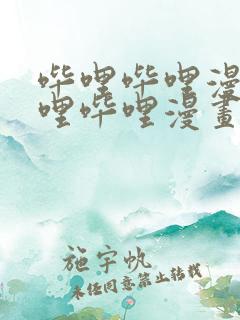 哔哩哔哩漫
哩哔哩漫畫
施宇帆
未经同意禁止转载